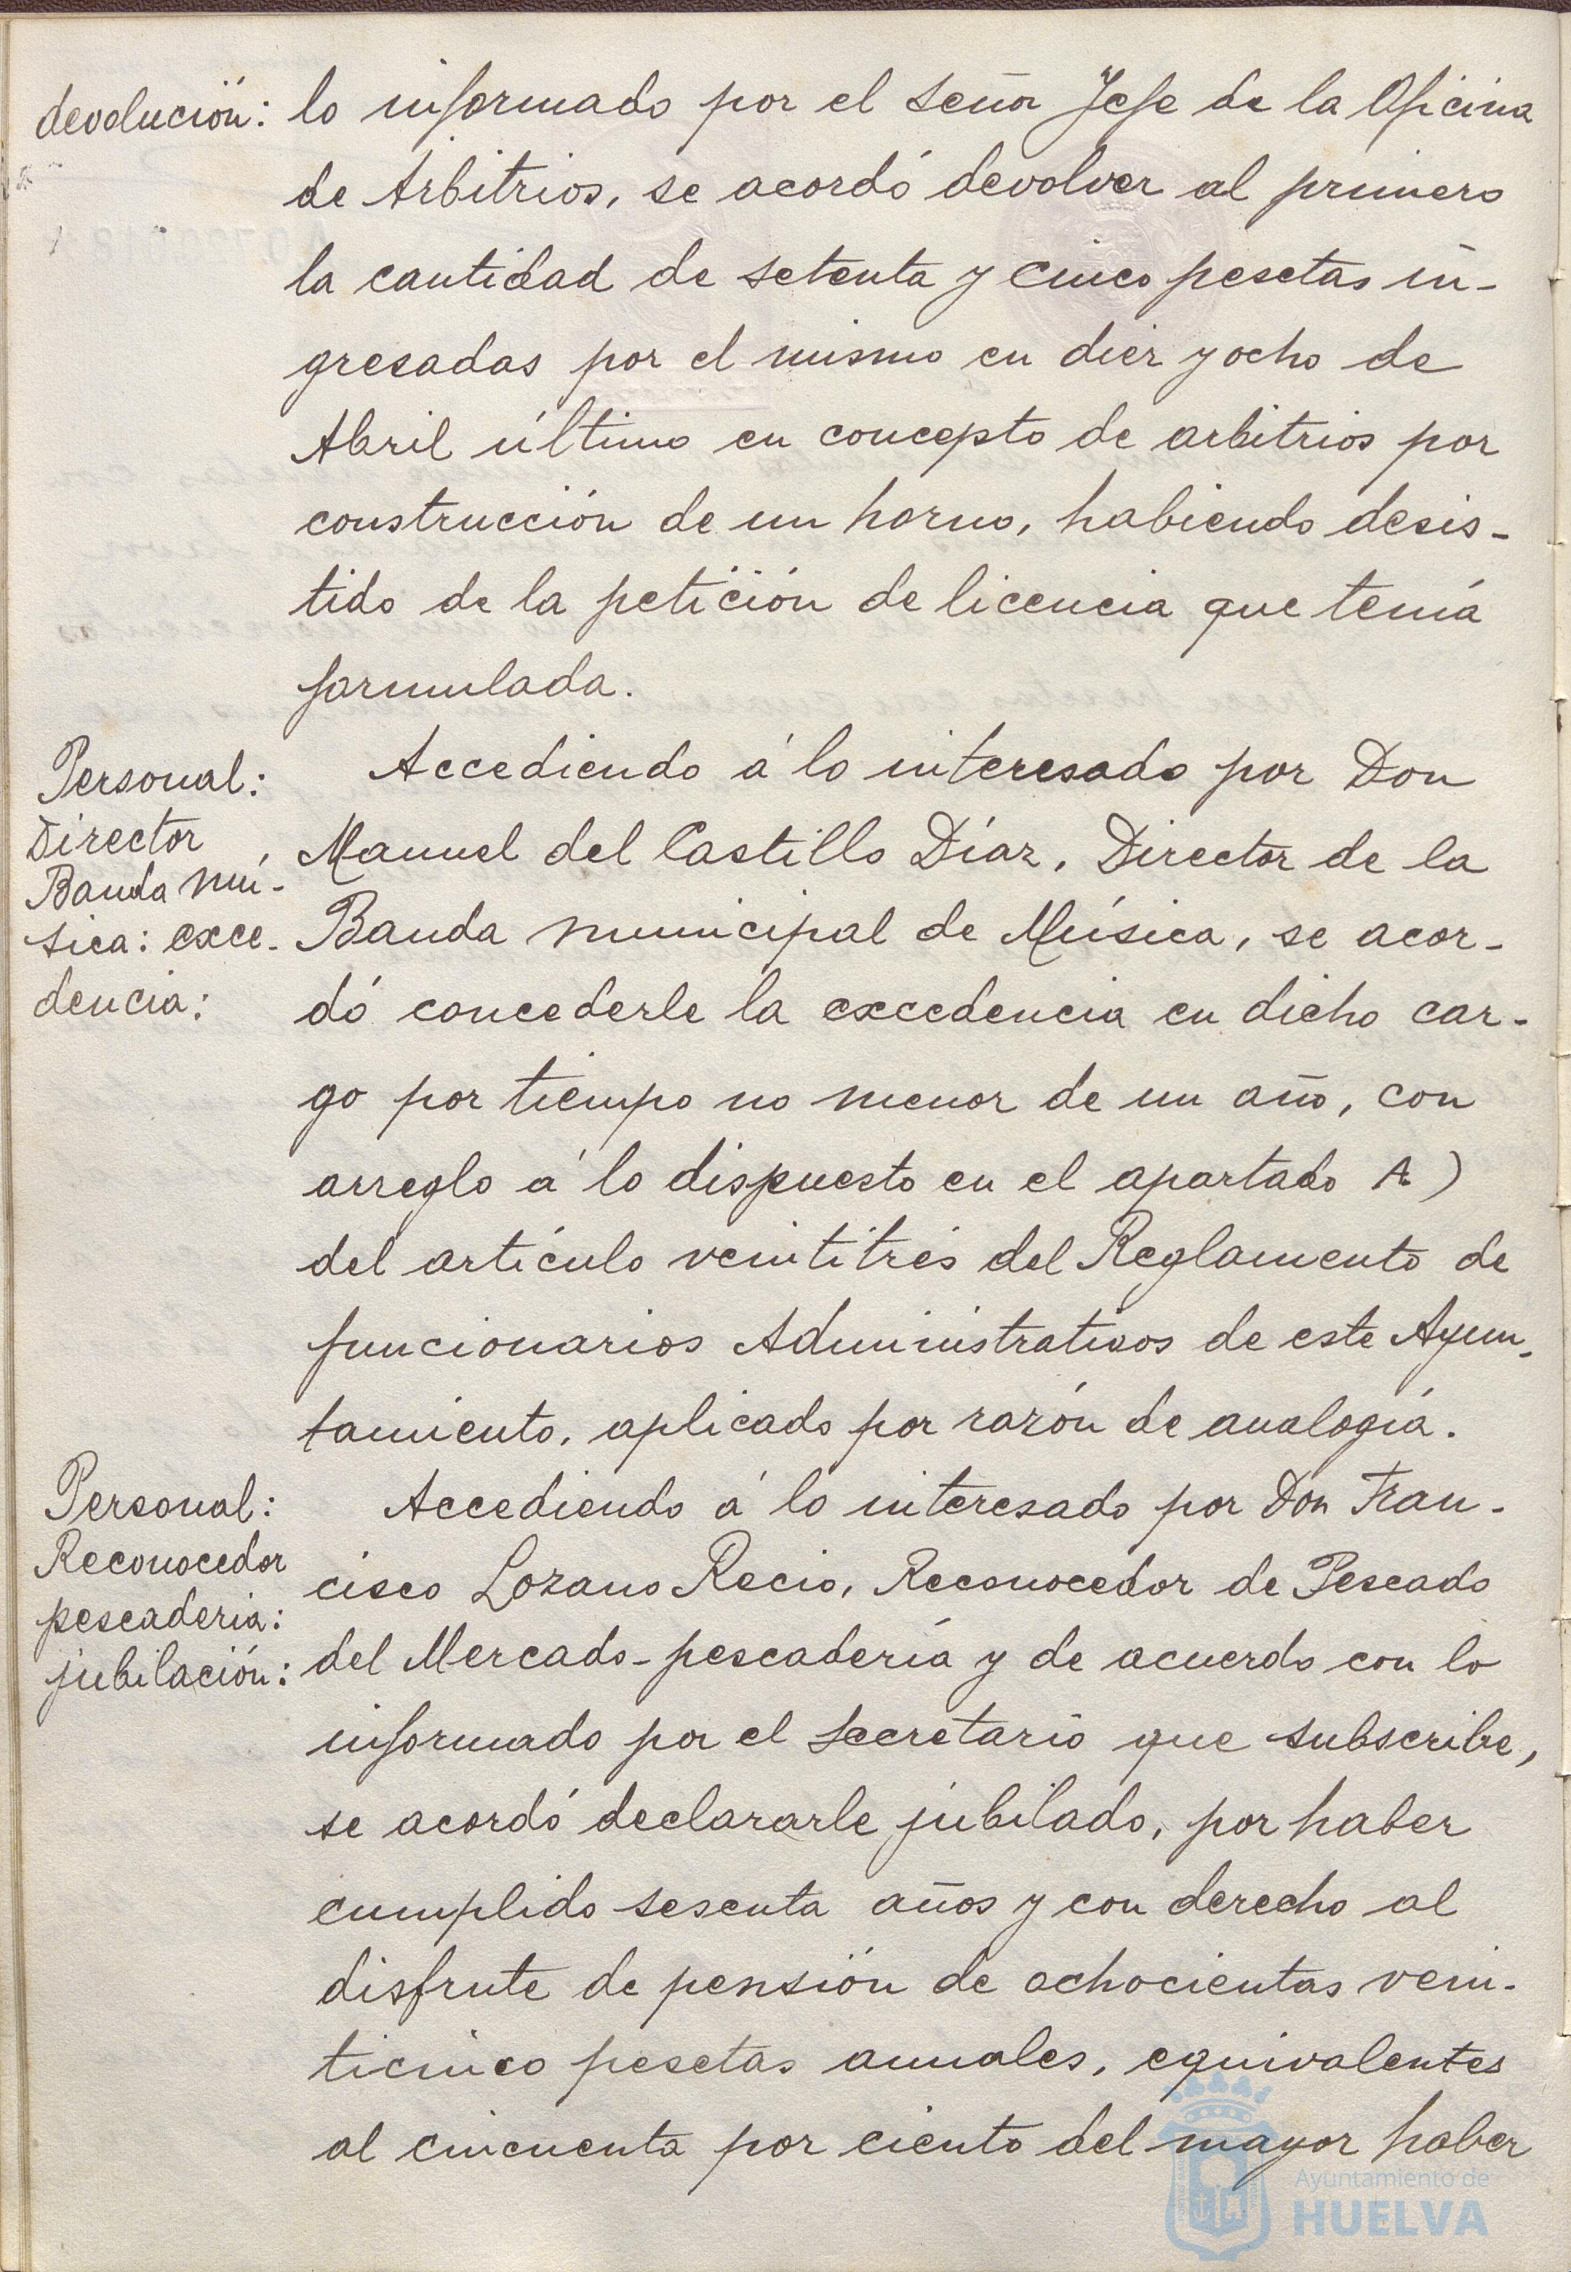 devolución:
lo informado por el señor Jefe de la Oficina
de Arbitrios, se acordó devolver al primero
la cantidad de setenta y cinco pesetas in-
gresadas por el mismo en diez y ocho de
Abril último en concepto de arbitrios por
construcción de un horno, habiendo desis-
tido de la petición de licencia que tenía
formulada.
Personal:
Director
Banda mú-
sica: exce-
dencia:
Accediendo á lo interesado por Don
Manuel del Castillo Díaz, Director de la
Banda municipal de Música, se acor-
dó concederle la excedencia en dicho car-
go por tiempo no menor de un año, con
arreglo á lo dispuesto en el apartado A)
del artículo veintitrés del Reglamento de
funcionarios Administrativos de este Ayun-
tamiento, aplicado por razón de analogía.
Personal:
Reconocedor
pescaderia:
jubilación:
Accediendo á lo interesado por Don Fran-
cisco Lozano Recio, Reconocedor de Pescado
del Mercado-pescadería y de acuerdo con lo
informado por el Secretario que subscribe,
se acordó declararle jubilado, por haber
cumplido sesenta años y con derecho al
disfrute de pensión de ochocientas vein-
ticinco pesetas anuales, equivalentes
al cincuenta por ciento del mayor haber
Ayuntamiento de
HUELVA